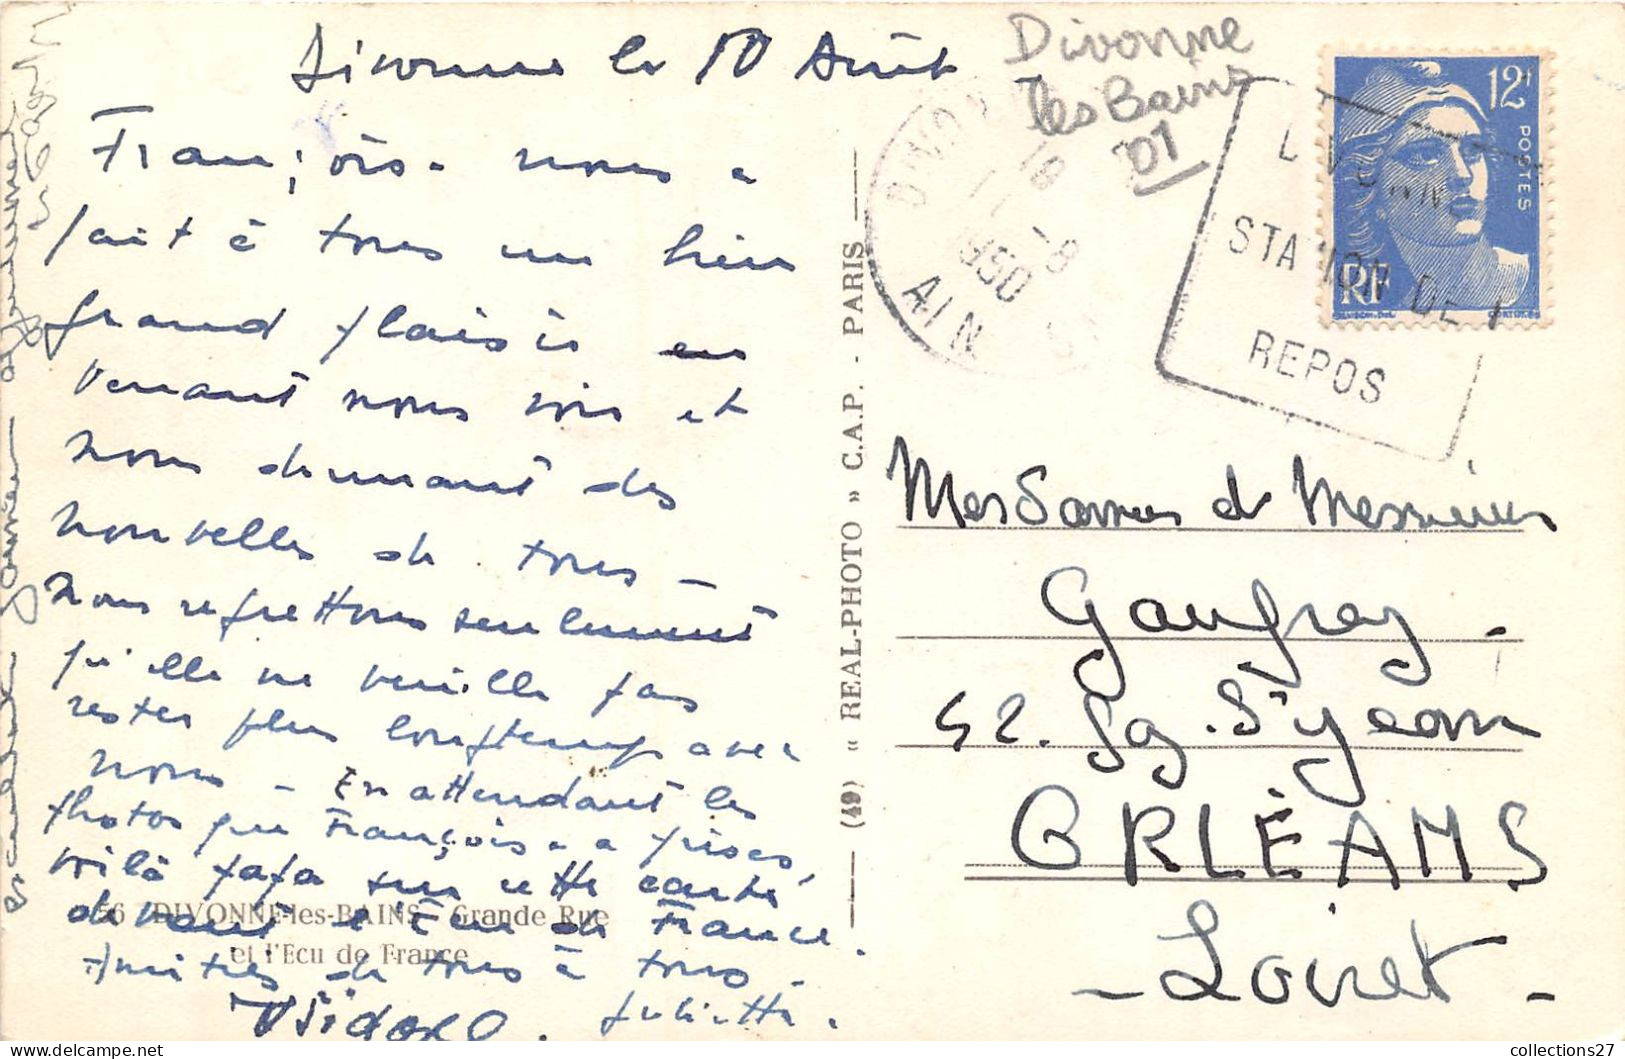 Divonne le 10 Août
Françoise nous a
fait à tous un bien
grand plaisir en
venant nous voir et
nous donnant des
nouvelles de tous -
Nous regrettons seulement
qu'elle ne veuille pas
rester plus longtemps avec
nous - En attendant les
photos que Françoise a prises,
voilà papa sur cette carte
devant l'Ecu de France.
Amitiés de tous à tous.
Juliette.
56 DIVONNE-les-BAINS - Grande Rue
et l'Ecu de France
(49) « REAL-PHOTO » C.A.P. - PARIS
Divonne
les Bains
01
DIVONNE
18
11 -8
1950
AIN
DIVONNE
STATION DE
REPOS
12F
POSTES
RF
Mesdames et Messieurs
Gaufrey -
42. Bg. St Jean
ORLÉANS
- Loiret -
collections27